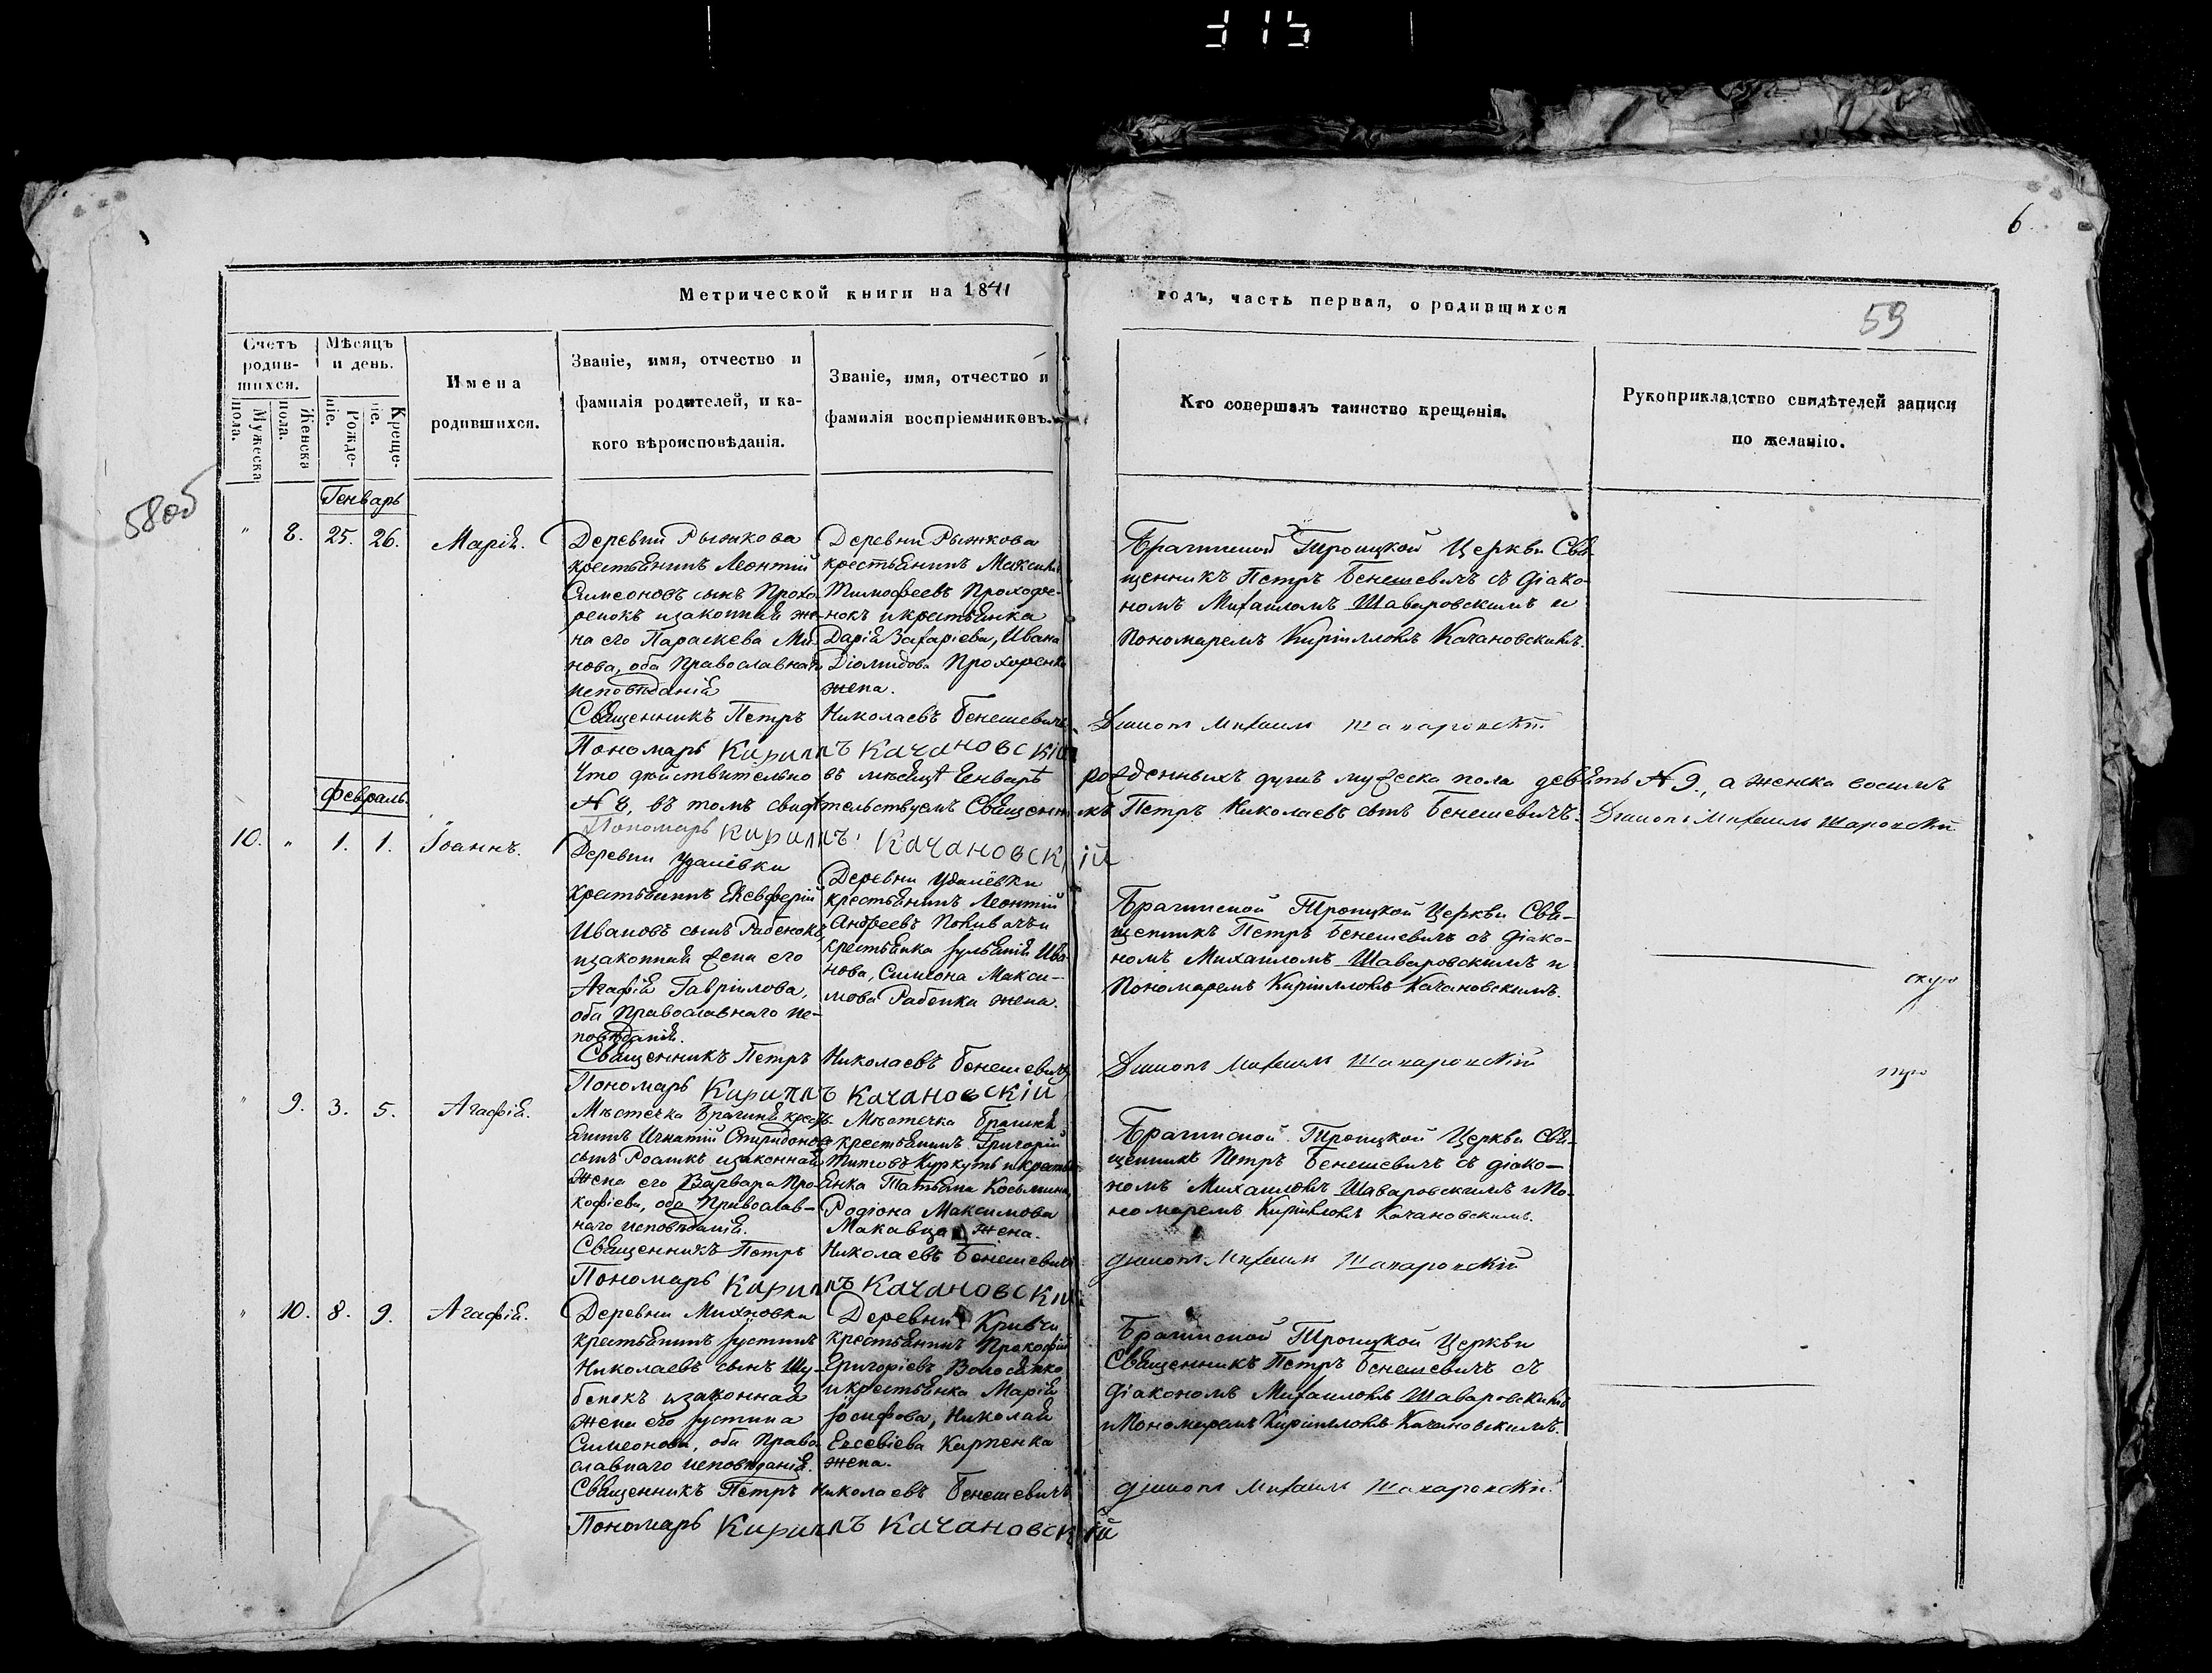 315
6.
59
580б
Метрической книги на 1841 годъ, часть первая, о родившихся
Счетъ родив-шихся.
Мѣсяцъ и день.
Мужеска пола.
Женска пола.
Рожде-ніе.
Креще-ніе.
Имена
родившихся.
Званіе, имя, отчество и
фамилія родителей, и ка-
кого вѣроисповѣданія.
Званіе, имя, отчество и
фамилія воспріемниковъ.
Кто совершалъ таинство крещенія.
Рукоприкладство свидѣтелей записи
по желанію.
Генварь
" 8. 25. 26. Марія.
Деревни Рыжкова
крестьянинъ Леонтій
Симеоновъ сынъ Прохо-
ренокъ изаконная же-
на его Параскева Ми-
нова, оба Православнаго
исповѣданія
Деревни Рыжкова
крестьянинъ Максимъ
Тимофеевъ Прохоре-
нокъ икрестьянка
Дарія Захаріева, Ивана
Діомидова Прохоренка
жена.
Брагинской Троицкой Церкви Свя-
щенникъ Петръ Бенешевичъ съ діако-
номъ Михаиломъ Шаваровскимъ и
Пономаремъ Кирилломъ Качановскимъ.
Священникъ Петръ Николаевъ Бенешевичъ
Діаконъ Михаилъ Шаваровскій
Пономарь Кириллъ Качановскій
Что дѣйствительно въ мѣсяцѣ Енварѣ рожденныхъ душъ мужеска пола девять № 9., а женска восимъ
№ 8, въ томъ свидѣтельствуемъ Священникъ Петръ Николаевъ сынъ Бенешевичъ. Діаконъ Михаилъ
Пономарь Кириллъ Качановскій
февраль
10. " 1. 1. Іоаннъ.
Деревни Удалёвки
крестьянинъ Елевферій
Ивановъ сынъ Рабенокъ,
изаконная жена его
Агафія Гавріилова,
оба Православнаго ис-
повѣданія.
Деревни Удалёвки
крестьянинъ Леонтій
Андреевъ
крестьянка Іульянія Ива-
нова, Симеона Макси-
мова Рабенка жена.
Брагинской Троицкой Церкви Свя-
щенникъ Петръ Бенешевичъ съ діако-
номъ Михаиломъ Шаваровскимъ и
Пономаремъ Кирилломъ Качановскимъ.
Священникъ Петръ Николаевъ Бенешевичъ
Діаконъ Михаилъ Шаваровскій
Пономарь Кириллъ Качановскій
" 9. 3. 5. Агафія.
Мѣстечка Брагиня кресть-
янинъ Игнатій Спиридоновъ
сынъ изаконная
жена его Варвара Про-
кофіева, оба Православ-
наго исповѣданія.
Мѣстечка Брагиня
крестьянинъ Григорій
Титовъ икресть-
янка Татьяна Косьмина,
Родіона Максимова
Макавца жена.
Брагинской Троицкой Церкви Свя-
щенникъ Петръ Бенешевичъ съ діако-
номъ Михаиломъ Шаваровскимъ иПо-
номаремъ Кирилломъ Качановскимъ.
Священникъ Петръ Николаевъ Бенешевичъ
діаконъ Михаилъ Шаваровскій
Пономарь Кириллъ Качановскій
" 10. 8. 9. Агафія.
Деревни Михновки
крестьянинъ Іустинъ
Николаевъ сынъ Шу-
бенокъ изаконная
жена его Іустина
Симеонова, оба Право-
славнаго исповѣданія.
Деревни Кривчи
крестьянинъ Прокофій
Григоріевъ
икрестьянка Марія
Іосифова, Николая
Евсевіева Карпенка
жена.
Брагинской Троицкой Церкви
Священникъ Петръ Бенешевичъ съ
діакономъ Михаиломъ Шаваровскимъ
иПономаремъ Кирилломъ Качановскимъ.
Священникъ Петръ Николаевъ Бенешевичъ
діаконъ Михаилъ Шаваровскій
Пономарь Кириллъ Качановскій